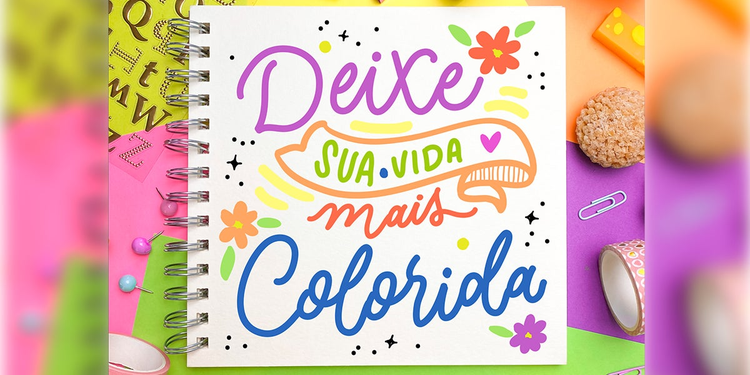 Deixe
SUA.VIDA
mais
Colorida